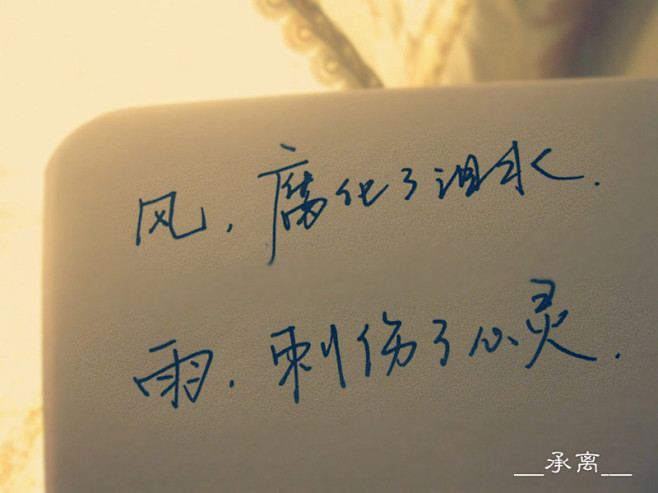 风，腐化了泪水.
雨.刺伤了心灵.
__承离__